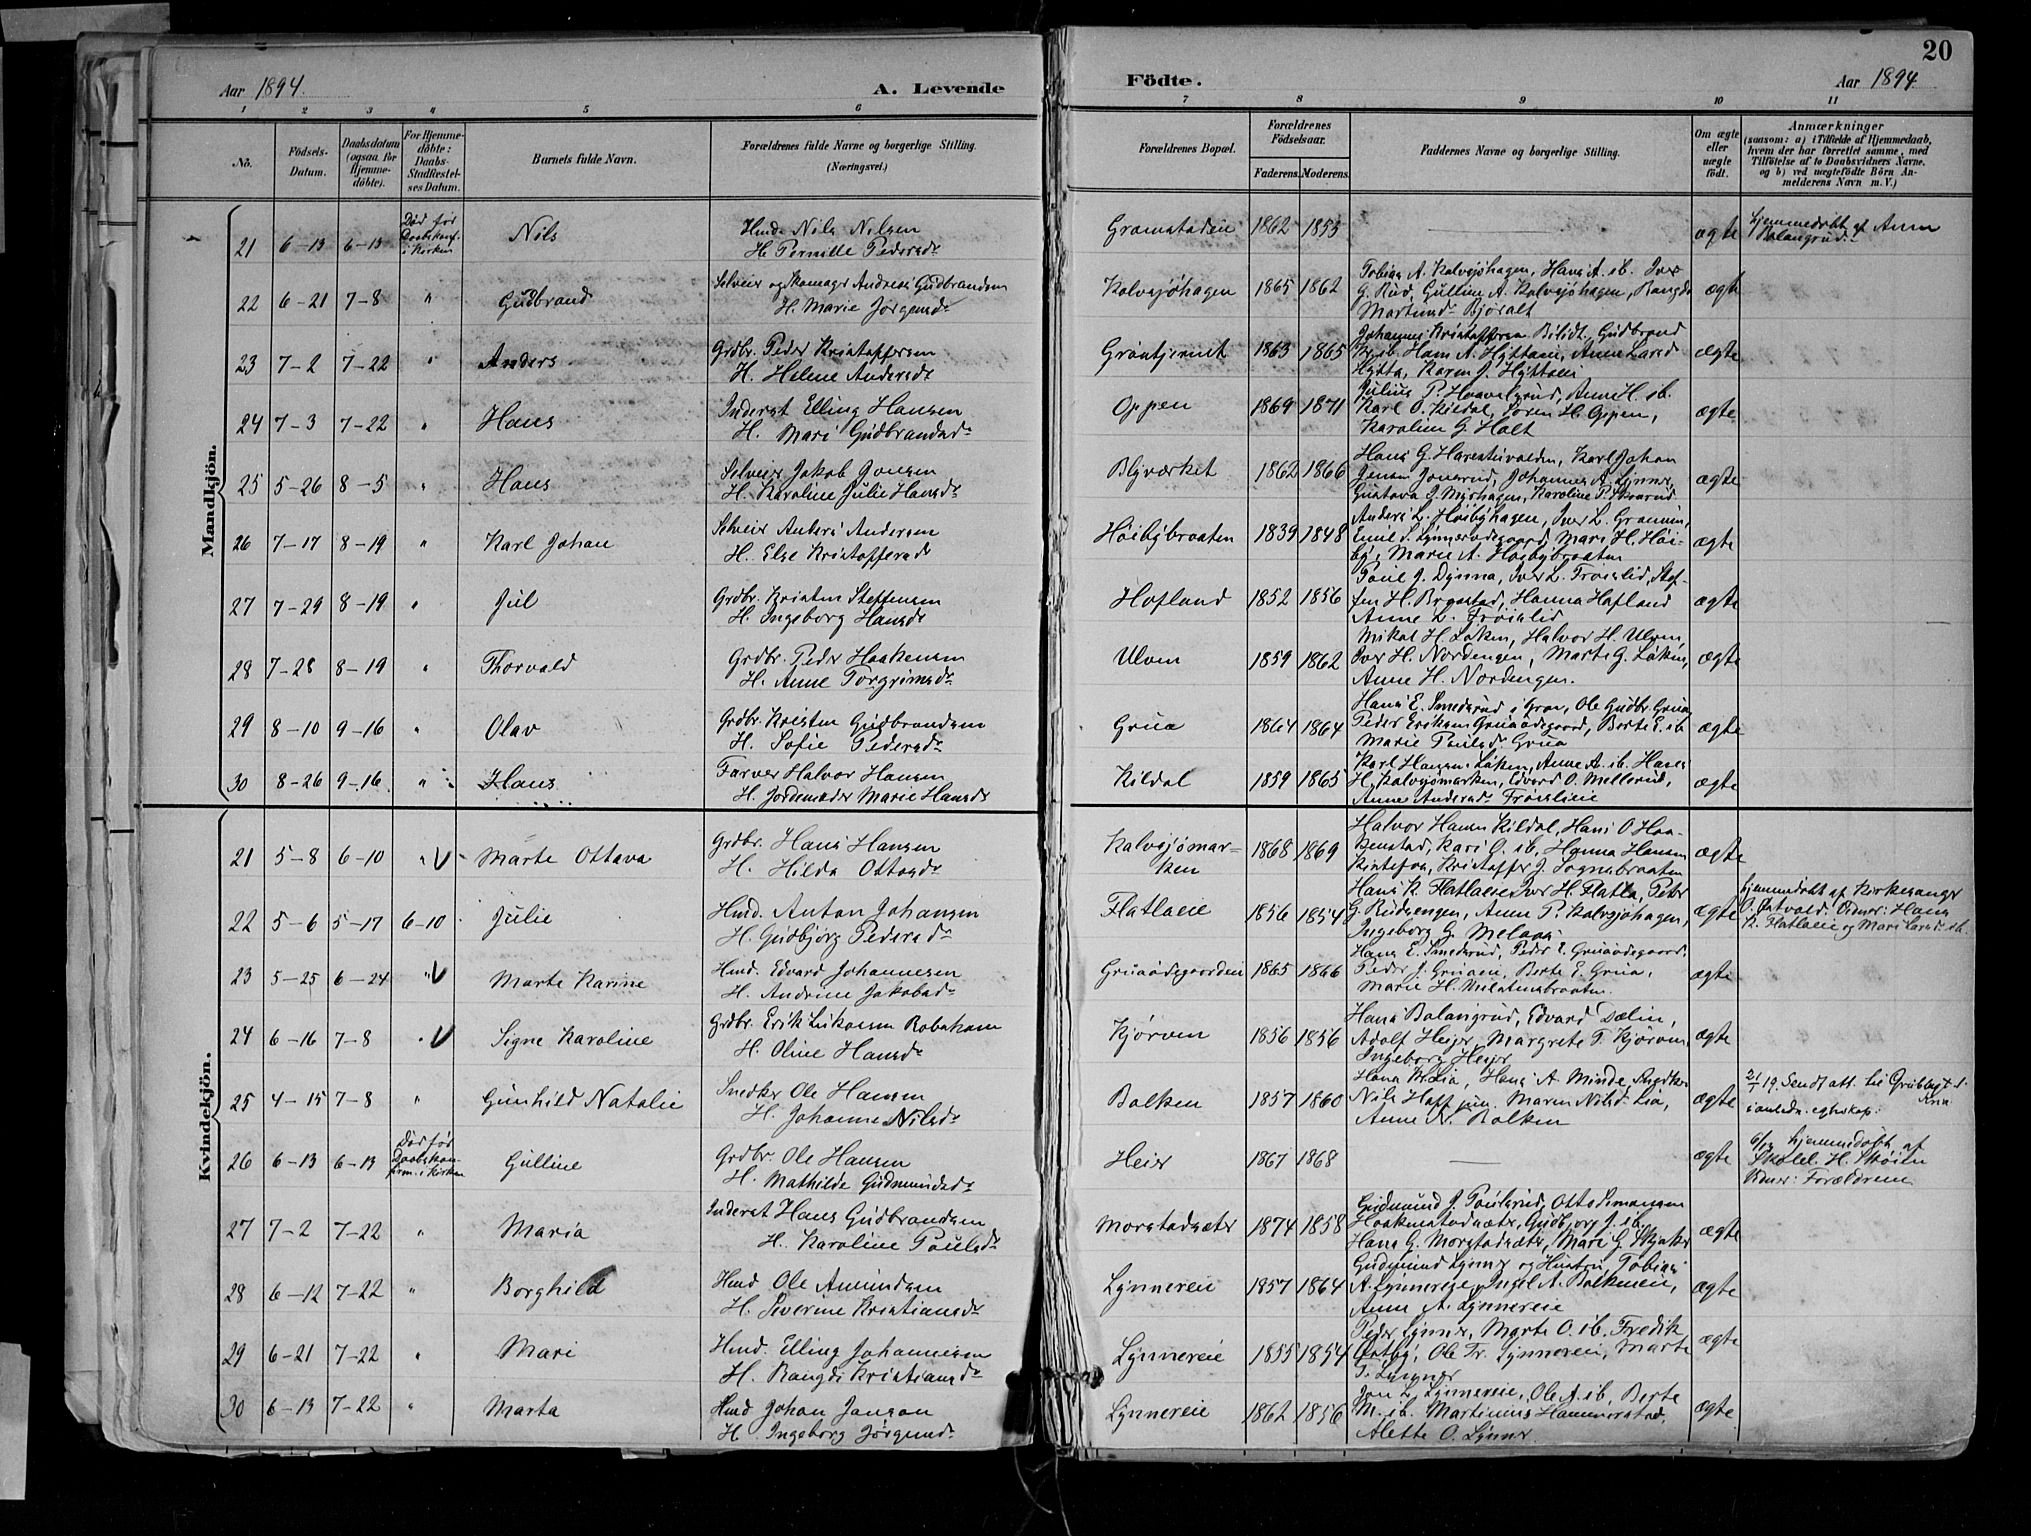 20
Aar 1894
A. Levende
Födte.
Aar 1894
1 2 3 4 5 6 7 8 9 10 11
No. Födsels-Datum. Daabsdatum (ogsaa for Hjemmedöbte). For Hjemmedöbte: Daabs-Stadfæstelses Datum. Barnets fulde Navn. Forældrenes fulde Navne og borgerlige Stilling. (Næringsvei.) Forældrenes Bopæl. Forældrenes Födselsaar. Faderens. Moderens. Faddernes Navne og borgerlige Stilling. Om ægte eller uægte födt. Anmærkninger (saasom: a) i Tilfælde af Hjemmedaab, hvem der har forrettet samme, med Tilföielse af to Daabsvidners Navne. og b) ved uægtefödte Börn Anmelderens Navn m. V.)
Mandkjön.
21 6-13 6-13 Død før Daabskonf. i Kirken Nils Hmd. Nils Nilsen
H. Pernille Pedersdr Gramstadeie 1862 1853 ægte hjemmedøbt af Anna Balangrud
22 6-21 7-8 " Gudbrand Selveier og Skomager Andreas Gudbrandsen
H. Marie Jørgensdr Kalvsjøhagen 1865 1862 Tobias A. Kalvsjøhagen, Hans A. ib. Iver
G. Rud, Gulline A. Kalvsjøhagen, Rangdi
Bjøralt ægte
23 7-2 7-22 " Anders Grdbr. Peder Kristoffersen
H. Helene Andersdr Grøntjernet 1863 1865 Johannes Kristoffersen Bilidt, Gudbrand
Kr. ib. Hans A. Hyttaeie, Anne Larsd
Hytta, Karen J. Hyttaeie ægte
24 7-3 7-22 " Hans Inderst Elling Hansen
H. Mari Gudbrandsdr Oppen 1869 1871 Julius P. Haavelsrud, Anne H. ib.
Karl O. Kildal, Søren H. Oppen,
Karoline G. Holt ægte
25 5-26 8-5 " Hans Selveier Jakob Jonsen
H. Karoline Julie Hansdr Blyværket 1862 1866 Hans G. Harestuvalden, Karl Johan
Jensen Jonsrud, Johannes A. Lynner,
Gustava J. Myrhagen, Karoline P. ægte
26 7-17 8-19 " Karl Johan Selveier Anders Andersen
H. Else Kristoffersdr Høibybraaten 1839 1848 Anders L. Høibyhagen, Iver L. Granum,
Emil S. Lynnersødegaard, Mari H. Høi-
by, Marie A. Høibybraaten ægte
27 7-29 8-19 " Jul Grdbr. Kristen Steffensen
H. Ingeborg Hansdr Hofland 1852 1856 Poul J. Dynna, Iver L. Frøislid, Stef-
fen H. Brgestad, Hanna Hofland
Anne L. Frøislid ægte
28 7-28 8-19 " Thorvald Grdbr. Peder Haakensen
H. Anne Torgrimsdr Ulven 1859 1862 Mikal H. Løken, Halvor H. Ulven,
Iver H. Nordengen, Marte G. Løken,
Anne H. Nordengen. ægte
29 8-10 9-16 " Olav Grdbr. Kristen Gudbrandsen
H. Sofie Pedersdr Grua 1864 1864 Hans E. Smedsrud i Gran, Ole Gudbr. Grua
Peder Eriksen Gruaødegaard, Berte E. ib
Marie Poulsdr Grua ægte
30 8-26 9-16 " Hans Farver Halvor Hansen
H. Jordemoder Marie Hansdr Kildal 1859 1865 Karl Hansen Løken, Anne A. ib. Hans
H. Kalvsjømarken, Edvard O. Mellerud,
Anne Andersdr Frøislieie ægte
Kvindekjön.
21 5-8 6-10 " V Marte Ottava Grdbr. Hans Hansen
H. Hilda Ottosdr Kalvsjømar-
ken 1868 1869 Halvor Hansen Kildal, Hans O. Haa-
kenstad, Kari O. ib, Hanna Hansen
Kristoffer J. Sognsbraaten ægte
22 5-6 5-17 6-10 Julie Hmd. Anton Johansen
H. Gudbjørg Pedersdr Flatlaeie 1856 1854 Hans K. Flatlaeie Iver H. Flatla, Peter
G. Rudsengen, Anne P. Kalvsjøhagen,
Ingeborg G. ægte hjemmedøbt af Kirkesanger
O. Østvold. Vidner: Hans
K. Flatlaeie og Mari Larsd. ib.
23 5-25 6-24 " V Marte Karine Hmd. Edvard Johannesen
H. Andrine Jakobsdr Gruaødegaardeie 1865 1866 Hans E. Smedsrud, Peder E. Gruaødegaard,
Peder J. Gruaeie, Berte E. Grua,
Marie H. ægte
24 6-16 7-8 " V Signe Karoline Grdbr. Erik Lukassen Robøkam
H. Oline Hansdr Kjørven 1856 1856 Hans Balangrud, Edvard Dælin,
Adolf Heier, Margrete T. Kjørven,
Ingeborg Heier ægte
25 4-15 7-8 " Gunhild Natalie Snedker Ole Hansen
H. Johanne Nilsdr Balken 1857 1860 Hans N. Lia, Hans A. Minde, Snedker
Nils Hoff jun, Maren Nilsdr Lia,
Anne N. Balken ægte 21/1 19. Sendt att. til
i anledn. egteskap.
26 6-13 6-13 Død før Daabskonfirm. i Kirken Gulline Grdbr. Ole Hansen
H. Mathilde Gudmundsdr Heier 1867 1868 ægte 6/13 hjemmedøbt af
Skolel. H. Skøien
Vidner: Forældrene
27 7-2 7-22 " Maria Inderst Hans Gudbrandsen
H. Karoline Poulsdr Morstadsæter 1874 1858 Gudmund J. Poulsrud, Otto Simensen
Haakenstadsæter, Gudbjørg J. ib.
Hans G. Morstadsæter, Mari G. ægte
28 6-12 7-22 " Borghild Hmd Ole Amundsen
H. Severine Kristiansdr Lynnereie 1857 1864 Gudmund Lynner og Hustru, Tobias
A. Lynnereie, Ingel A. Balkeneie,
Anne A. Lynnereie ægte
29 6-21 7-22 " Mari Hmd. Elling Johannesen
H. Rangdi Kristiansdr Lynnereie 1855 1854 Peder Lynner, Marte O. ib. Fredik
Østby, Ole Fr. Lynnereie, Marte
P. Lynner ægte
30 6-13 7-22 " Marta Hmd Johan Jonson
H. Ingeborg Jørgensdr Lynnereie 1862 1856 Jon L. Lynnereie, Ole A. ib, Berte
M. ib. Martinius Hammerstad,
Alette O. Lynner ægte